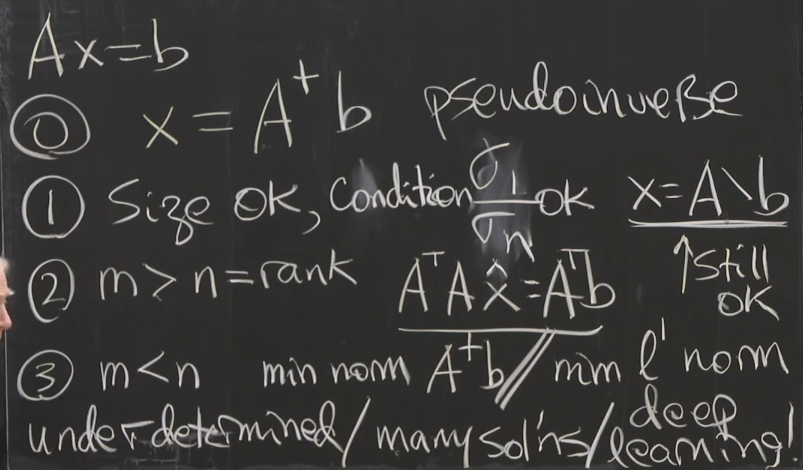 Ax=b
⓪ x = A⁺b pseudoinverse
① Size OK, Condition σ₁/σₙ ok x=A\b
② m>n=rank AᵀAx̂=Aᵀb ↑still OK
③ m<n min norm A⁺b // min l¹ norm
underdetermined/many sol'ns/deep learning!